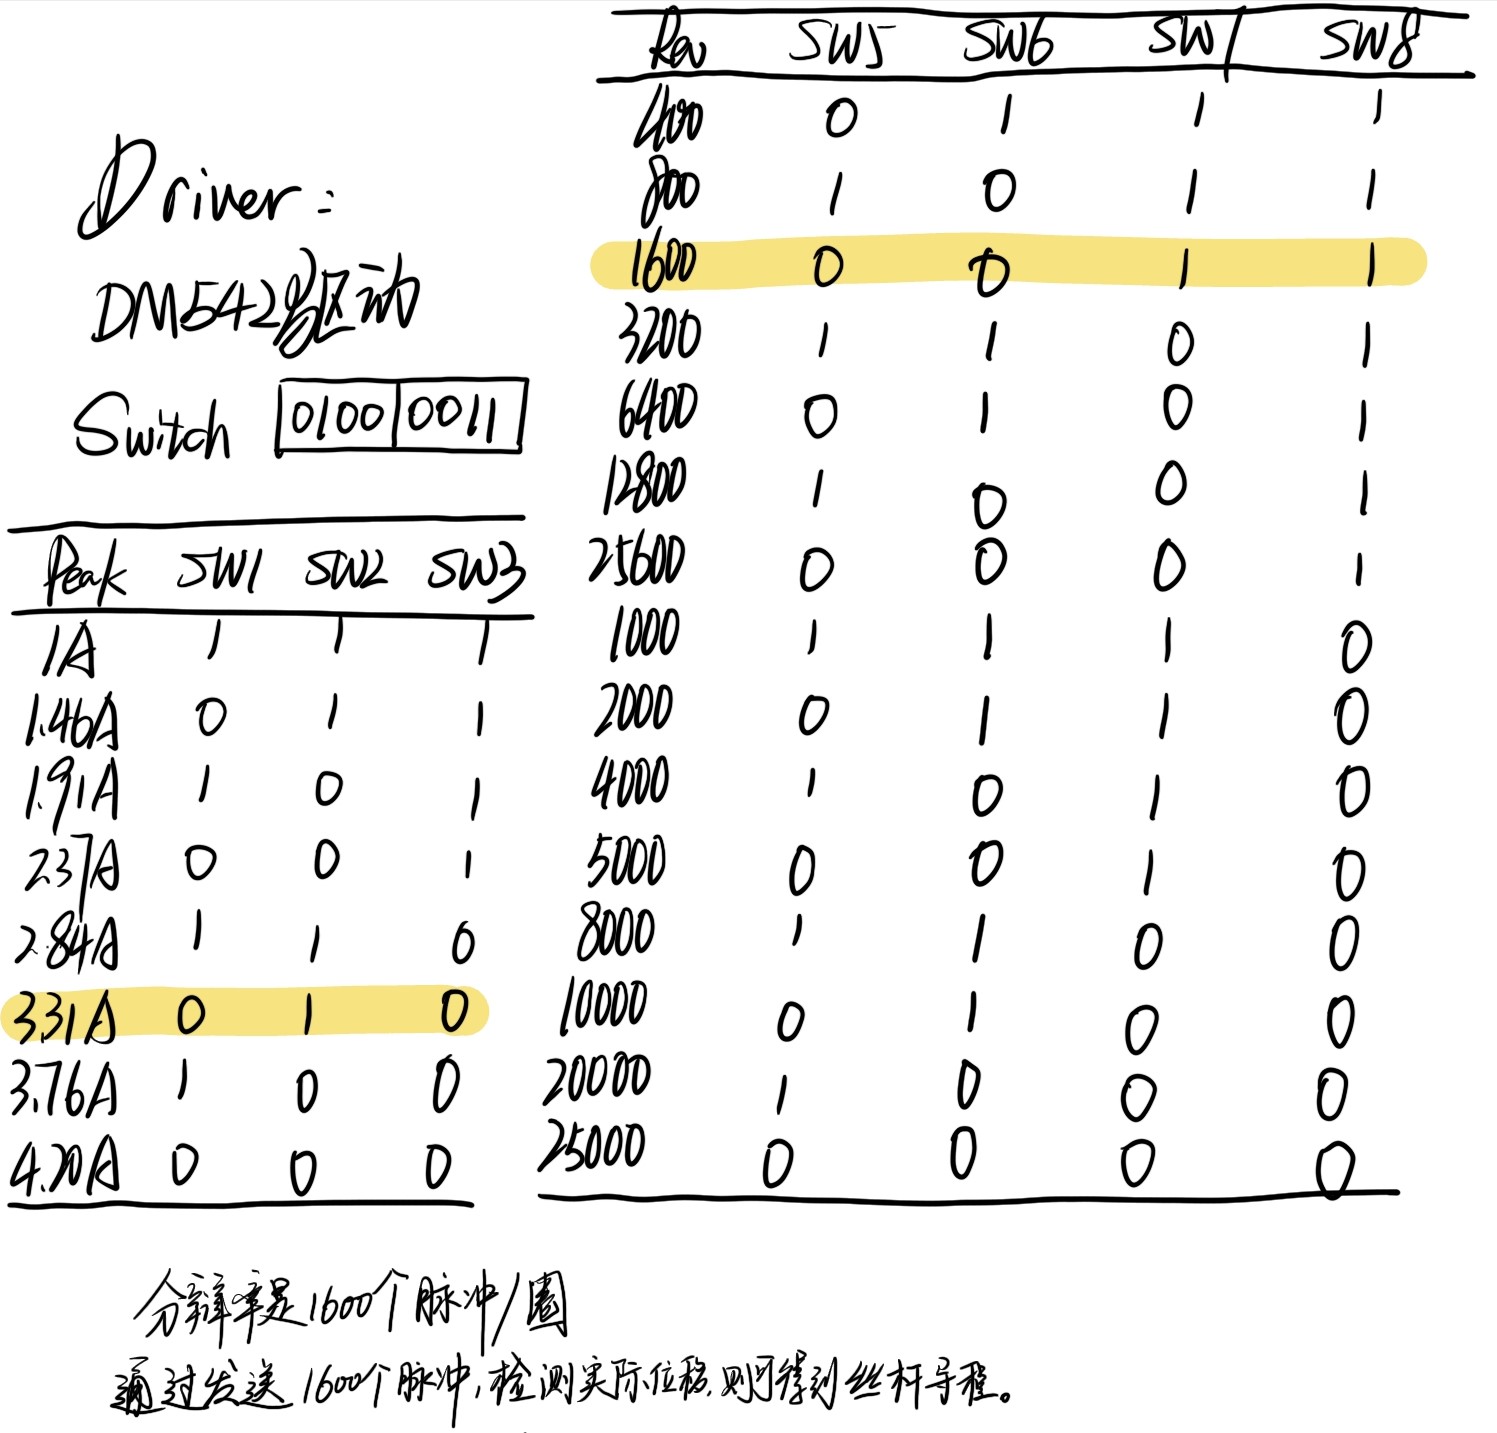 Driver:
DM542驱动
Switch 0100 0011
Peak SW1 SW2 SW3
1A 1 1 1
1.46A 0 1 1
1.91A 1 0 1
2.37A 0 0 1
2.84A 1 1 0
3.31A 0 1 0
3.76A 1 0 0
4.20A 0 0 0
Rev SW5 SW6 SW7 SW8
400 0 1 1 1
800 1 0 1 1
1600 0 0 1 1
3200 1 1 0 1
6400 0 1 0 1
12800 1 0 0 1
25600 0 0 0 1
1000 1 1 1 0
2000 0 1 1 0
4000 1 0 1 0
5000 0 0 1 0
8000 1 1 0 0
10000 0 1 0 0
20000 1 0 0 0
25000 0 0 0 0
分辩率是1600个脉冲/圈
通过发送1600个脉冲,检测实际位移,则可得到丝杆导程。